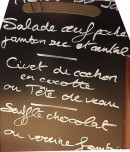 Salade œuf poché
jambon sec et cantal
Civet de cochon
en cocotte
ou Tête de veau
Soufflé chocolat
ou verrine